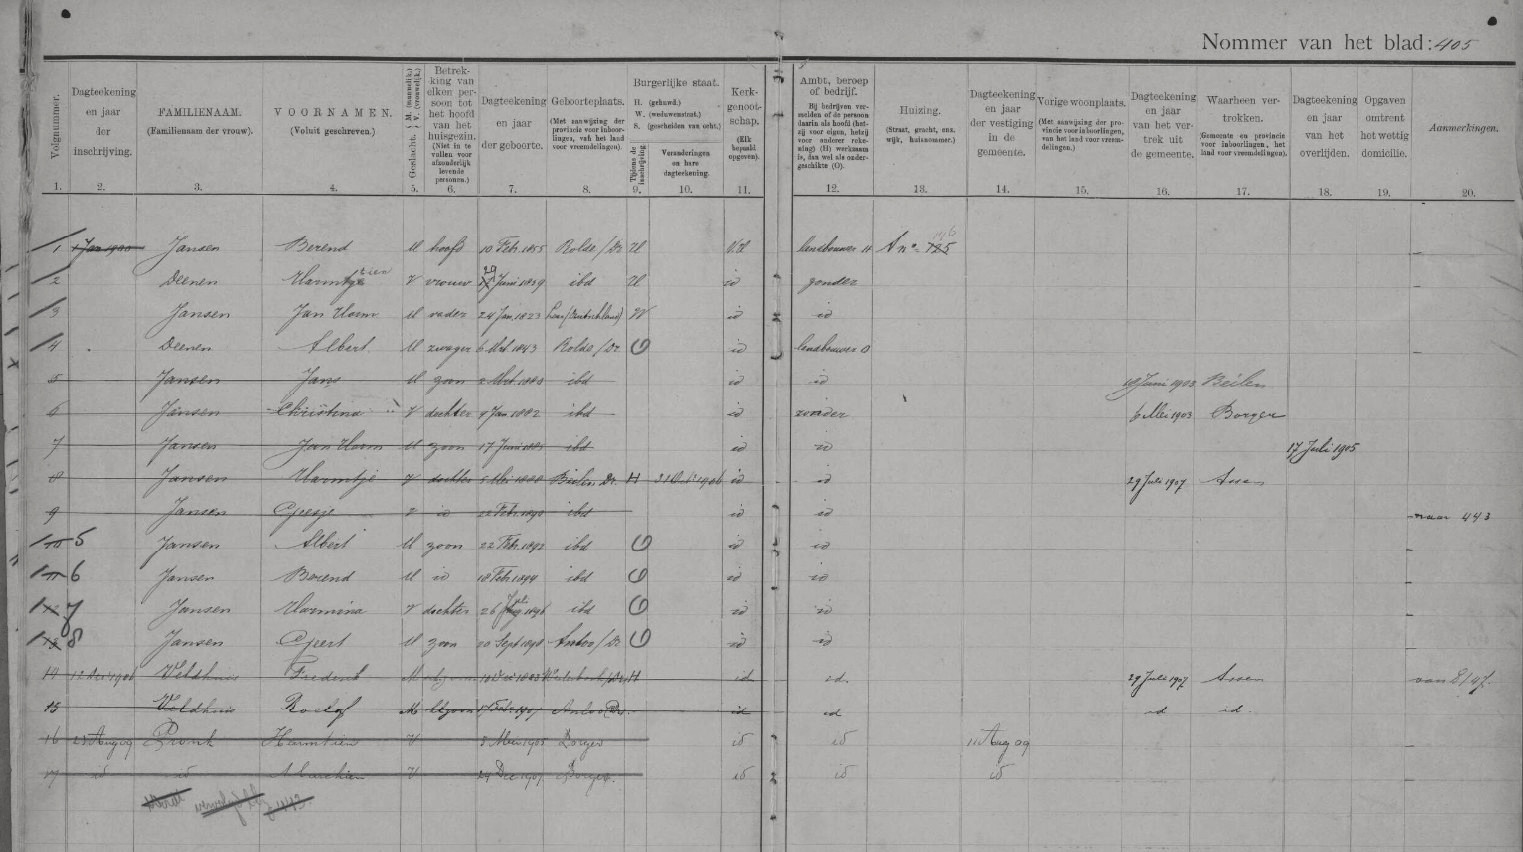 Nommer van het blad: 405
Volgnummer. 1.
Dagteekening en jaar der inschrijving. 2.
FAMILIENAAM. (Familienaam der vrouw). 3.
VOORNAMEN. (Voluit geschreven.) 4.
Geslacht. M. (mannelijk.) V. (vrouwelijk.) 5.
Betrekking van elken persoon tot het hoofd van het huisgezin. (Niet in te vullen voor afzonderlijk levende personen.) 6.
Dagteekening en jaar der geboorte. 7.
Geboorteplaats. (Met aanwijzing der provincie voor inboorlingen, van het land voor vreemdelingen). 8.
Burgerlijke staat. H. (gehuwd.) W. (weduwenstaat.) S. (gescheiden van echt.)
Tijdens de inschrijving 9.
Veranderingen en hare dagteekening. 10.
Kerkgenootschap. (Elk bepaald opgeven). 11.
Ambt, beroep of bedrijf. Bij bedrijven vermelden of de persoon daarin als hoofd (hetzij voor eigen, hetzij voor anderer rekening) (H) werkzaam is, dan wel als ondergeschikte (O). 12.
Huizing. (Straat, gracht, enz. wijk, huisnommer.) 13.
Dagteekening en jaar der vestiging in de gemeente. 14.
Vorige woonplaats. (Met aanwijzing der provincie voor inboorlingen, van het land voor vreemdelingen.) 15.
Dagteekening en jaar van het vertrek uit de gemeente. 16.
Waarheen vertrokken. (Gemeente en provincie voor inboorlingen, het land voor vreemdelingen). 17.
Dagteekening en jaar van het overlijden. 18.
Opgaven omtrent het wettig domicilie. 19.
Aanmerkingen. 20.
1 1 Jan 1900 Jansen Berend M hoofd 10 Febr. 1855 Rolde / Dr H NH landbouwer H A no 725 146
2 Deenen Harmtje tien V vrouw 29 Juni 1859 ibd H id zonder
3 Jansen Jan Harm M vader 24 Jan. 1823 (Duitschland) W id id
4 Deenen Albert M zwager 6 Oct. 1843 Rolde / Dr. O id landbouwer O
5 Jansen Jans M zoon 2 Oct. 1880 ibd id id 19 Juni 1903 Beilen
6 Jansen Christina V dochter 9 Jan. 1882 ibd id zonder 6 Mei 1903 Borger
7 Jansen Jan Harm M zoon 17 Juni ibd id id 17 Juli 1905
8 Jansen Harmtje V dochter 5 Mei 1888 Beilen Dr. H 31 Oct. 1906 id id 29 Juli 1907 Assen
9 Jansen Geesje V id 22 Febr. 1890 ibd id id naar 443
10 5 Jansen Albert M zoon 22 Febr. 1892 ibd O id id
11 6 Jansen Berend M id 18 Febr. 1894 ibd O id id
12 7 Jansen Harmina V dochter 26 Juli 1896 ibd O id id
13 8 Jansen Geert M zoon 20 Sept. 1898 Anloo / Dr O id id
14 12 Dec 1906 Veldhuis Frederik M 1883 Westerbork / Dr H id id. 29 Juli 1907 Assen van E/47.
15 Veldhuis Roelof M 17 Febr. 1907 Anloo Dr. id id id id.
16 23 Aug 09 Pronk Harmtien V 3 Mei 1905 Borger id id 11 Aug 09
17 id id V 24 Dec 1907 Borger. id id id